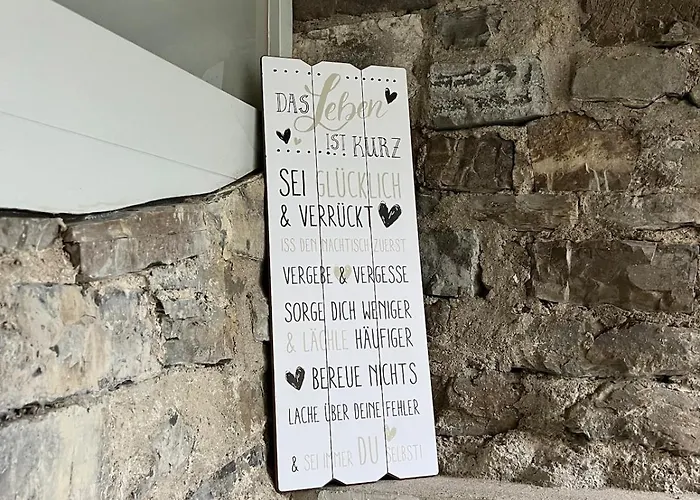 DAS Leben
IST KURZ
SEI GLÜCKLICH
& VERRÜCKT
ISS DEN NACHTISCH ZUERST
VERGEBE & VERGESSE
SORGE DICH WENIGER
& LÄCHLE HÄUFIGER
BEREUE NICHTS
LACHE ÜBER DEINE FEHLER
& SEI IMMER DU SELBST!